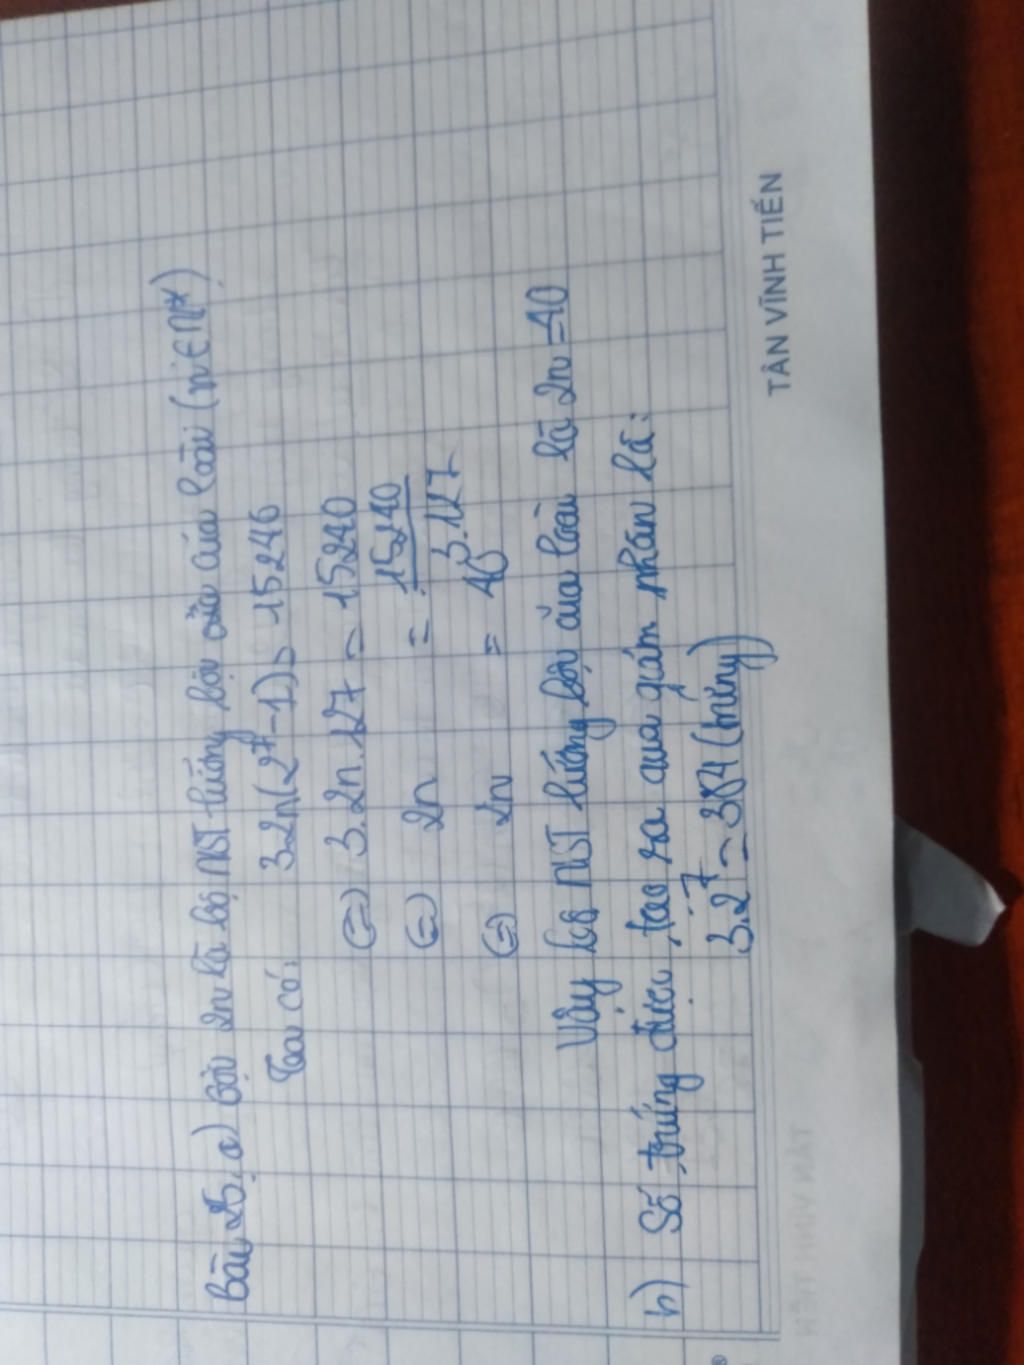 Bài 25. a) Gọi 2n là bộ NST lưỡng bội của của loài (n ∈ N*)
Ta có: 3.2n(2⁷-1) = 15240
(=) 3.2n.127 = 15240
(=) 2n = 15240/3.127
(=) 2n = 40
Vậy bộ NST lưỡng bội của loài là 2n = 40
b) Số trứng được tạo ra qua giảm phân là:
3.2⁷ = 384 (trứng)
TÂN VĨNH TIẾN